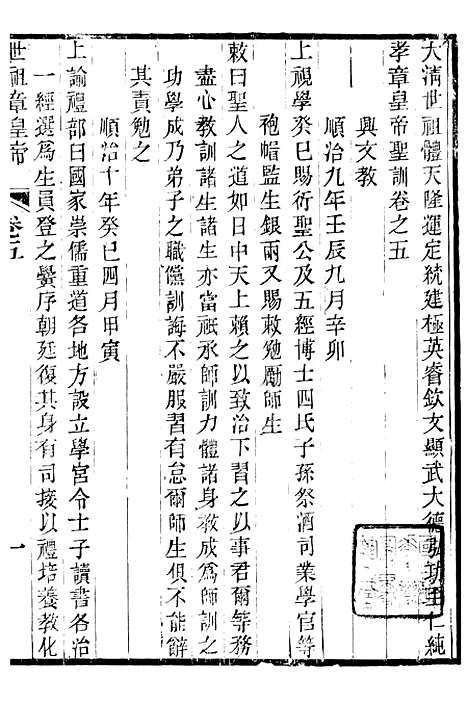 大清世祖體天隆運定統建極英睿欽文顯武大德弘功至仁純
孝章皇帝聖訓卷之五
興文教
順治九年壬辰九月辛卯
上視學癸巳賜衍聖公及五經博士四氏子孫祭酒司業學官等
袍帽監生銀兩又賜敕勉勵師生
敕曰聖人之道如日中天上賴之以致治下習之以事君爾等務
盡心教訓諸生諸生亦當祇承師訓力體諸身教成爲師訓之
功學成乃弟子之職儻訓誨不嚴服習有怠爾師生俱不能辭
其責勉之
順治十年癸巳四月甲寅
上諭禮部曰國家崇儒重道各地方設立學宮令士子讀書各治
一經選爲生員登之黌序朝廷復其身有司接以禮培養教化
世祖章皇帝 卷之五 一